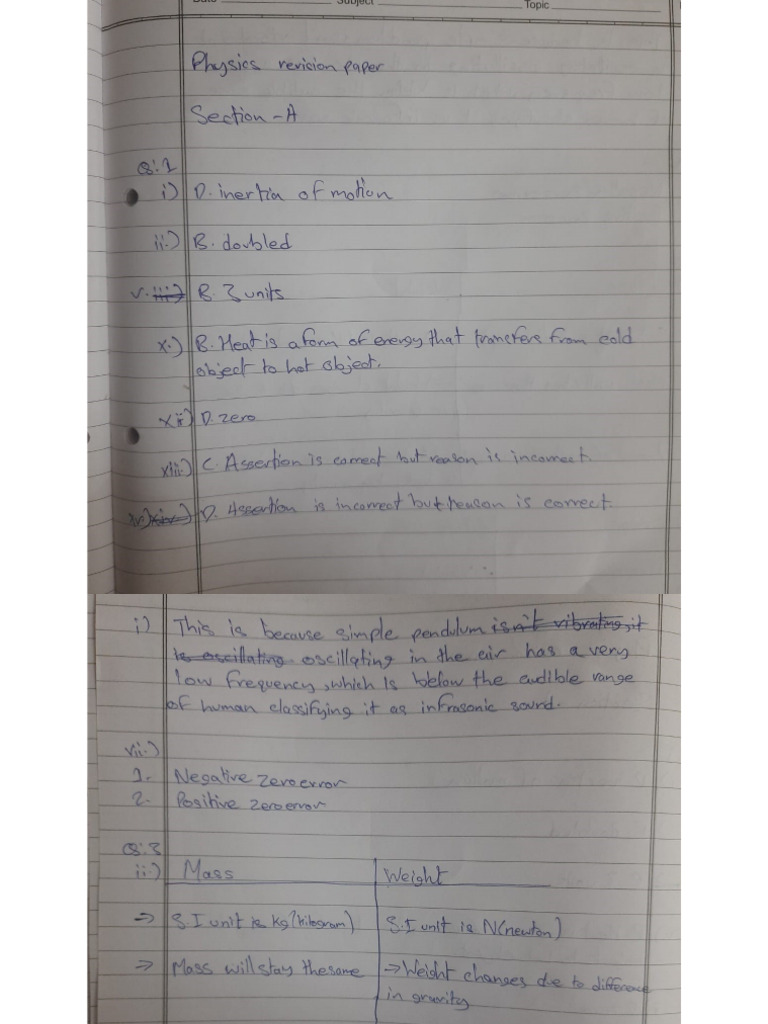 Subject Topic
Physics revision paper
Section - A
Q:1
i) D. inertia of motion
ii.) B. doubled
v. iii) B. 3 units
x.) B. Heat is a form of energy that transfers from cold
object to hot object.
xii) D. zero
xiii.) C. Assertion is correct but reason is incorrect.
xiv.) D. Assertion is incorrect but reason is correct.
i) This is because simple pendulum isn't vibrating, it
is oscillating. oscillating in the air has a very
low frequency, which is below the audible range
of human classifying it as infrasonic sound.
vii.)
1. Negative zero error
2. Positive zero error
Q:3
ii.) Mass Weight
→ S.I unit is kg (kilogram) S.I unit is N(newton)
→ Mass will stay the same → Weight changes due to difference
in gravity